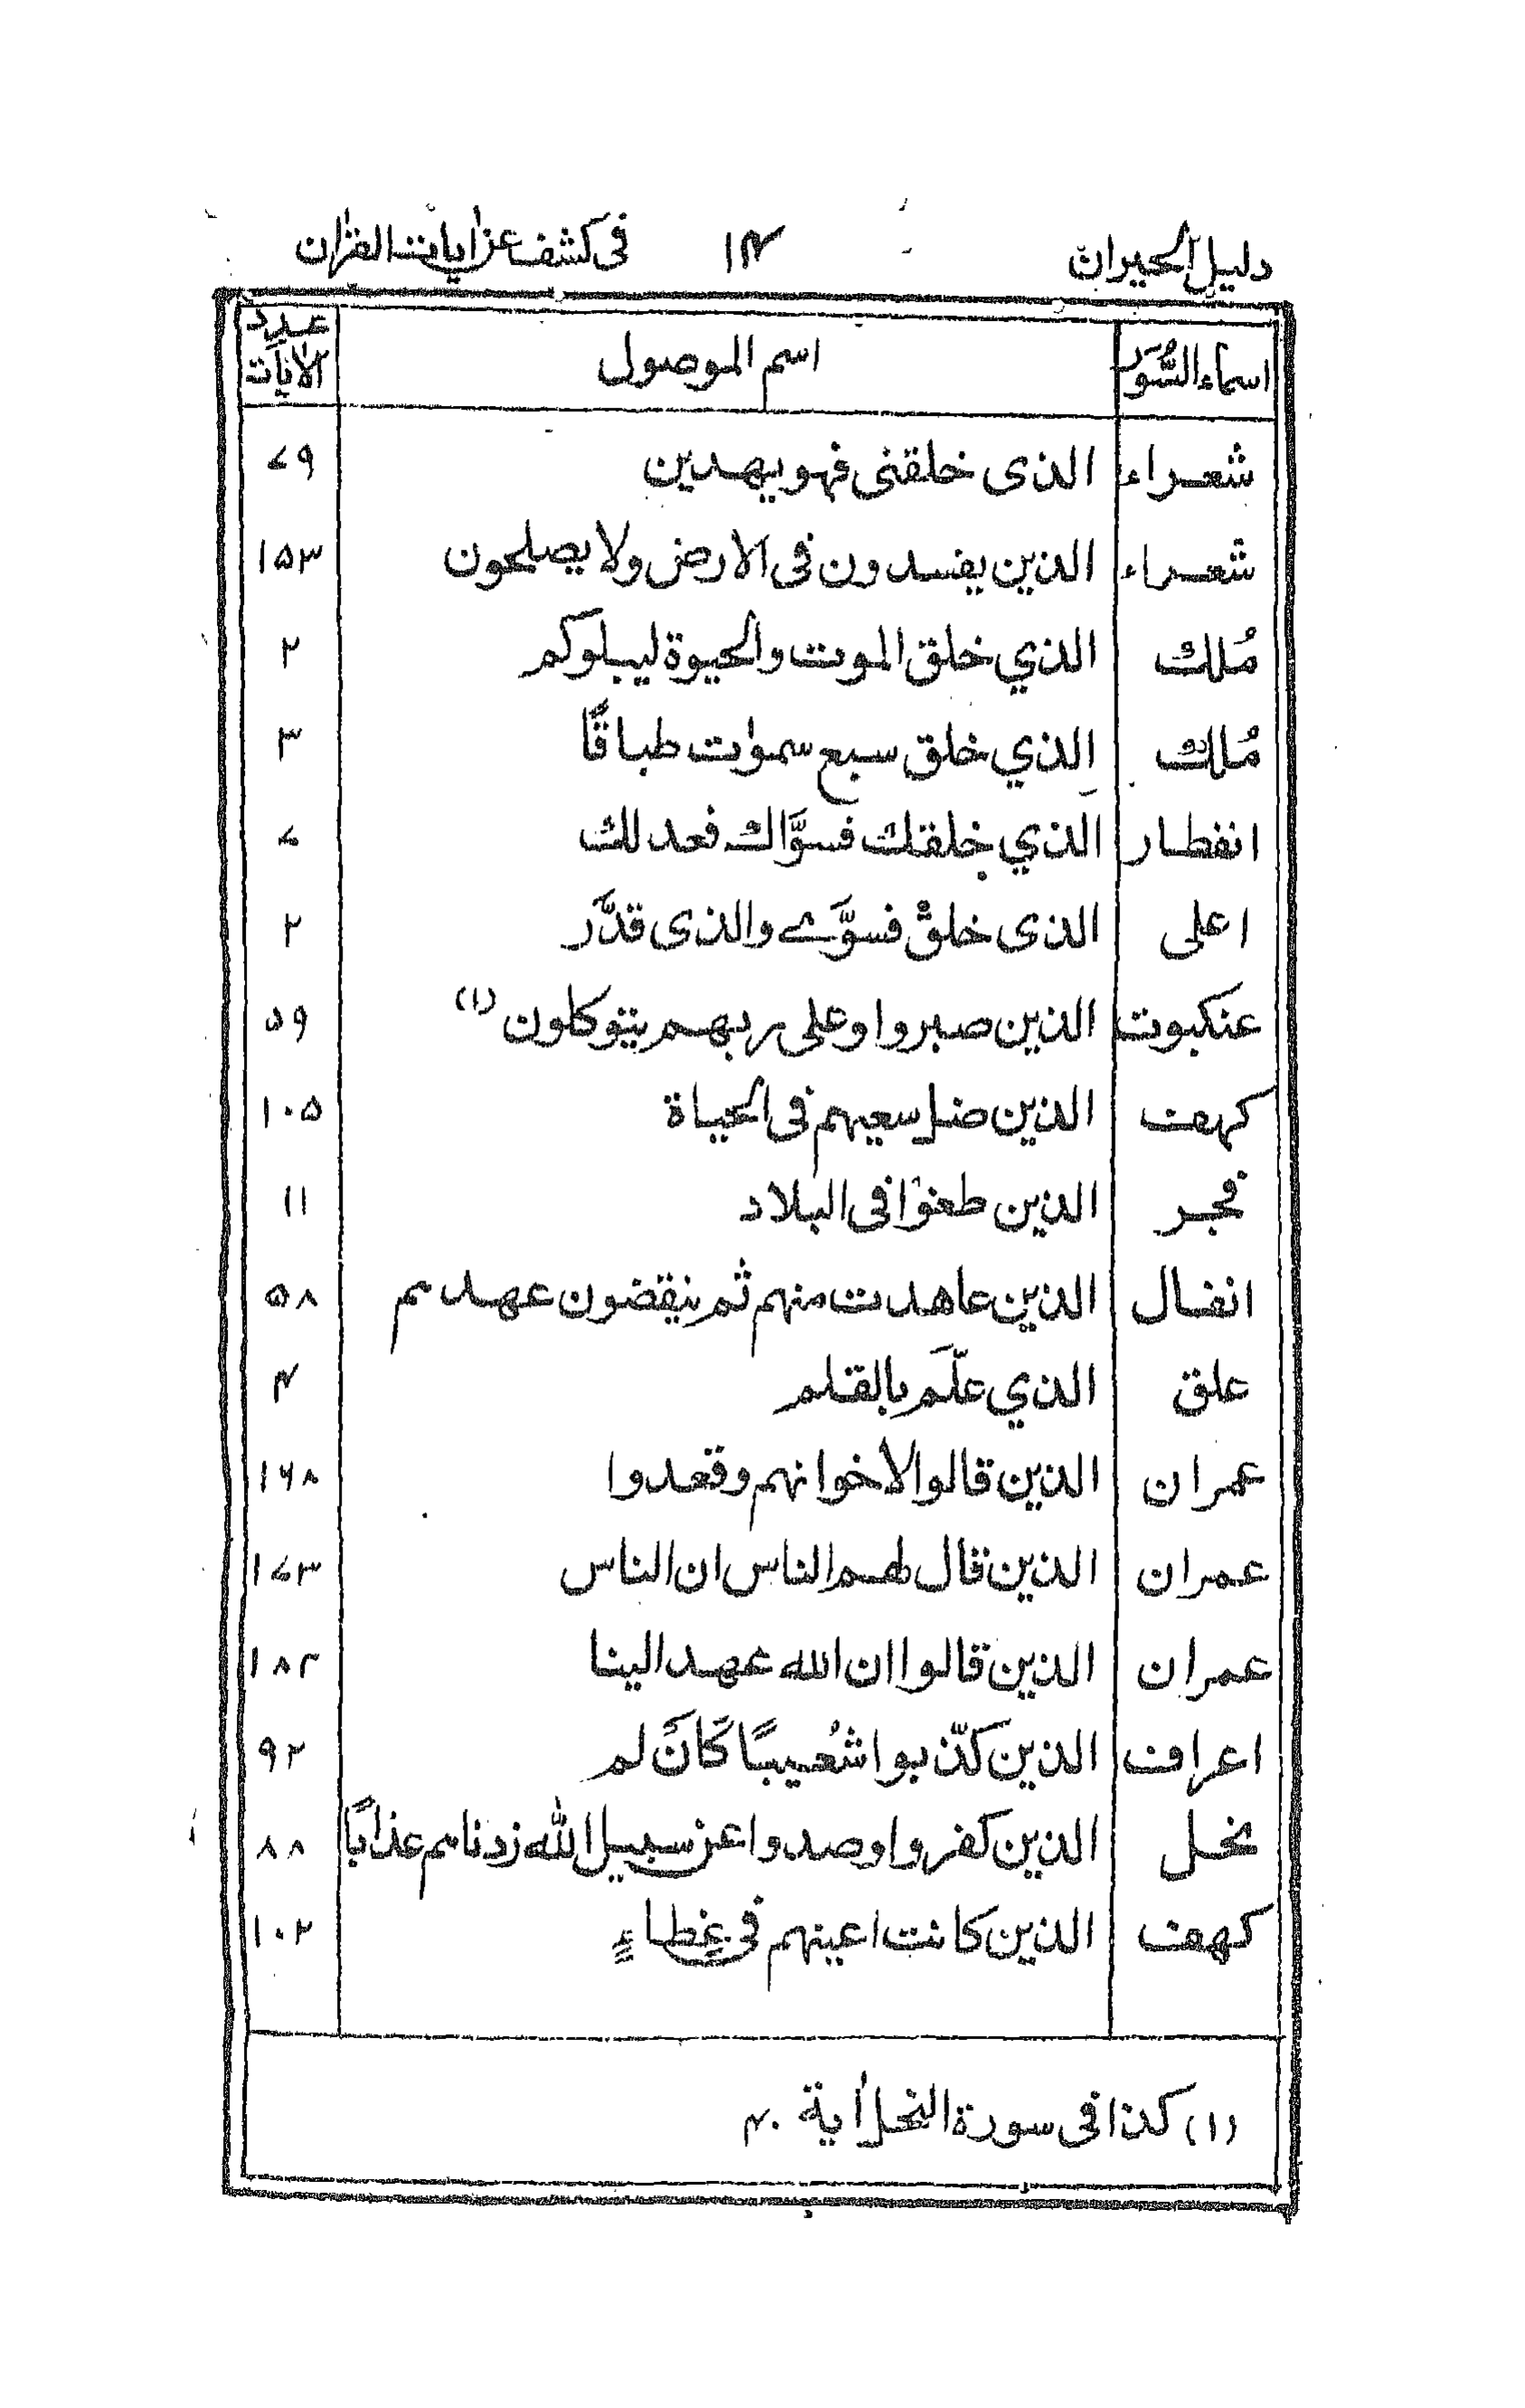 دليل الحيران ١٤ في كشف عن ايات القرآن
اسماء السُّوَر اسم الموصول عدد الآيات
شعراء الذى خلقنى فهو يهدين ٧٩
شعراء الذين يفسدون فى الارض ولا يصلحون ١٥٣
مُلك الذي خلق الموت والحيوة ليبلوكم ٢
مُلك الذي خلق سبع سمٰوٰت طباقًا ٣
انفطار الذي خلقك فسوَّاك فعدلك ٧
اعلى الذى خلق فسوَّے والذى قدَّر ٢
عنكبوت الذين صبروا وعلى ربهم يتوكلون (١) ٥٩
كهف الذين ضل سعيهم فى الحياة ١٠٥
فجر الذين طغوا فى البلاد ١١
انفال الذين عاهدت منهم ثم ينقضون عهدهم ٥٨
علق الذي علّم بالقلم ٤
عمران الذين قالوا لاخوانهم وقعدوا ١٦٨
عمران الذين قال لهم الناس ان الناس ١٧٣
عمران الذين قالوا ان الله عهد الينا ١٨٢
اعراف الذين كذّبوا شُعيبًا كَاَنْ لم ٩٢
نحل الذين كفروا وصدوا عن سبيل الله زدناهم عذابًا ٨٨
كهف الذين كانت اعينهم فى غِطاءٍ ١٠٢
(١) كذا فى سورة النحل اٰية ٤٠